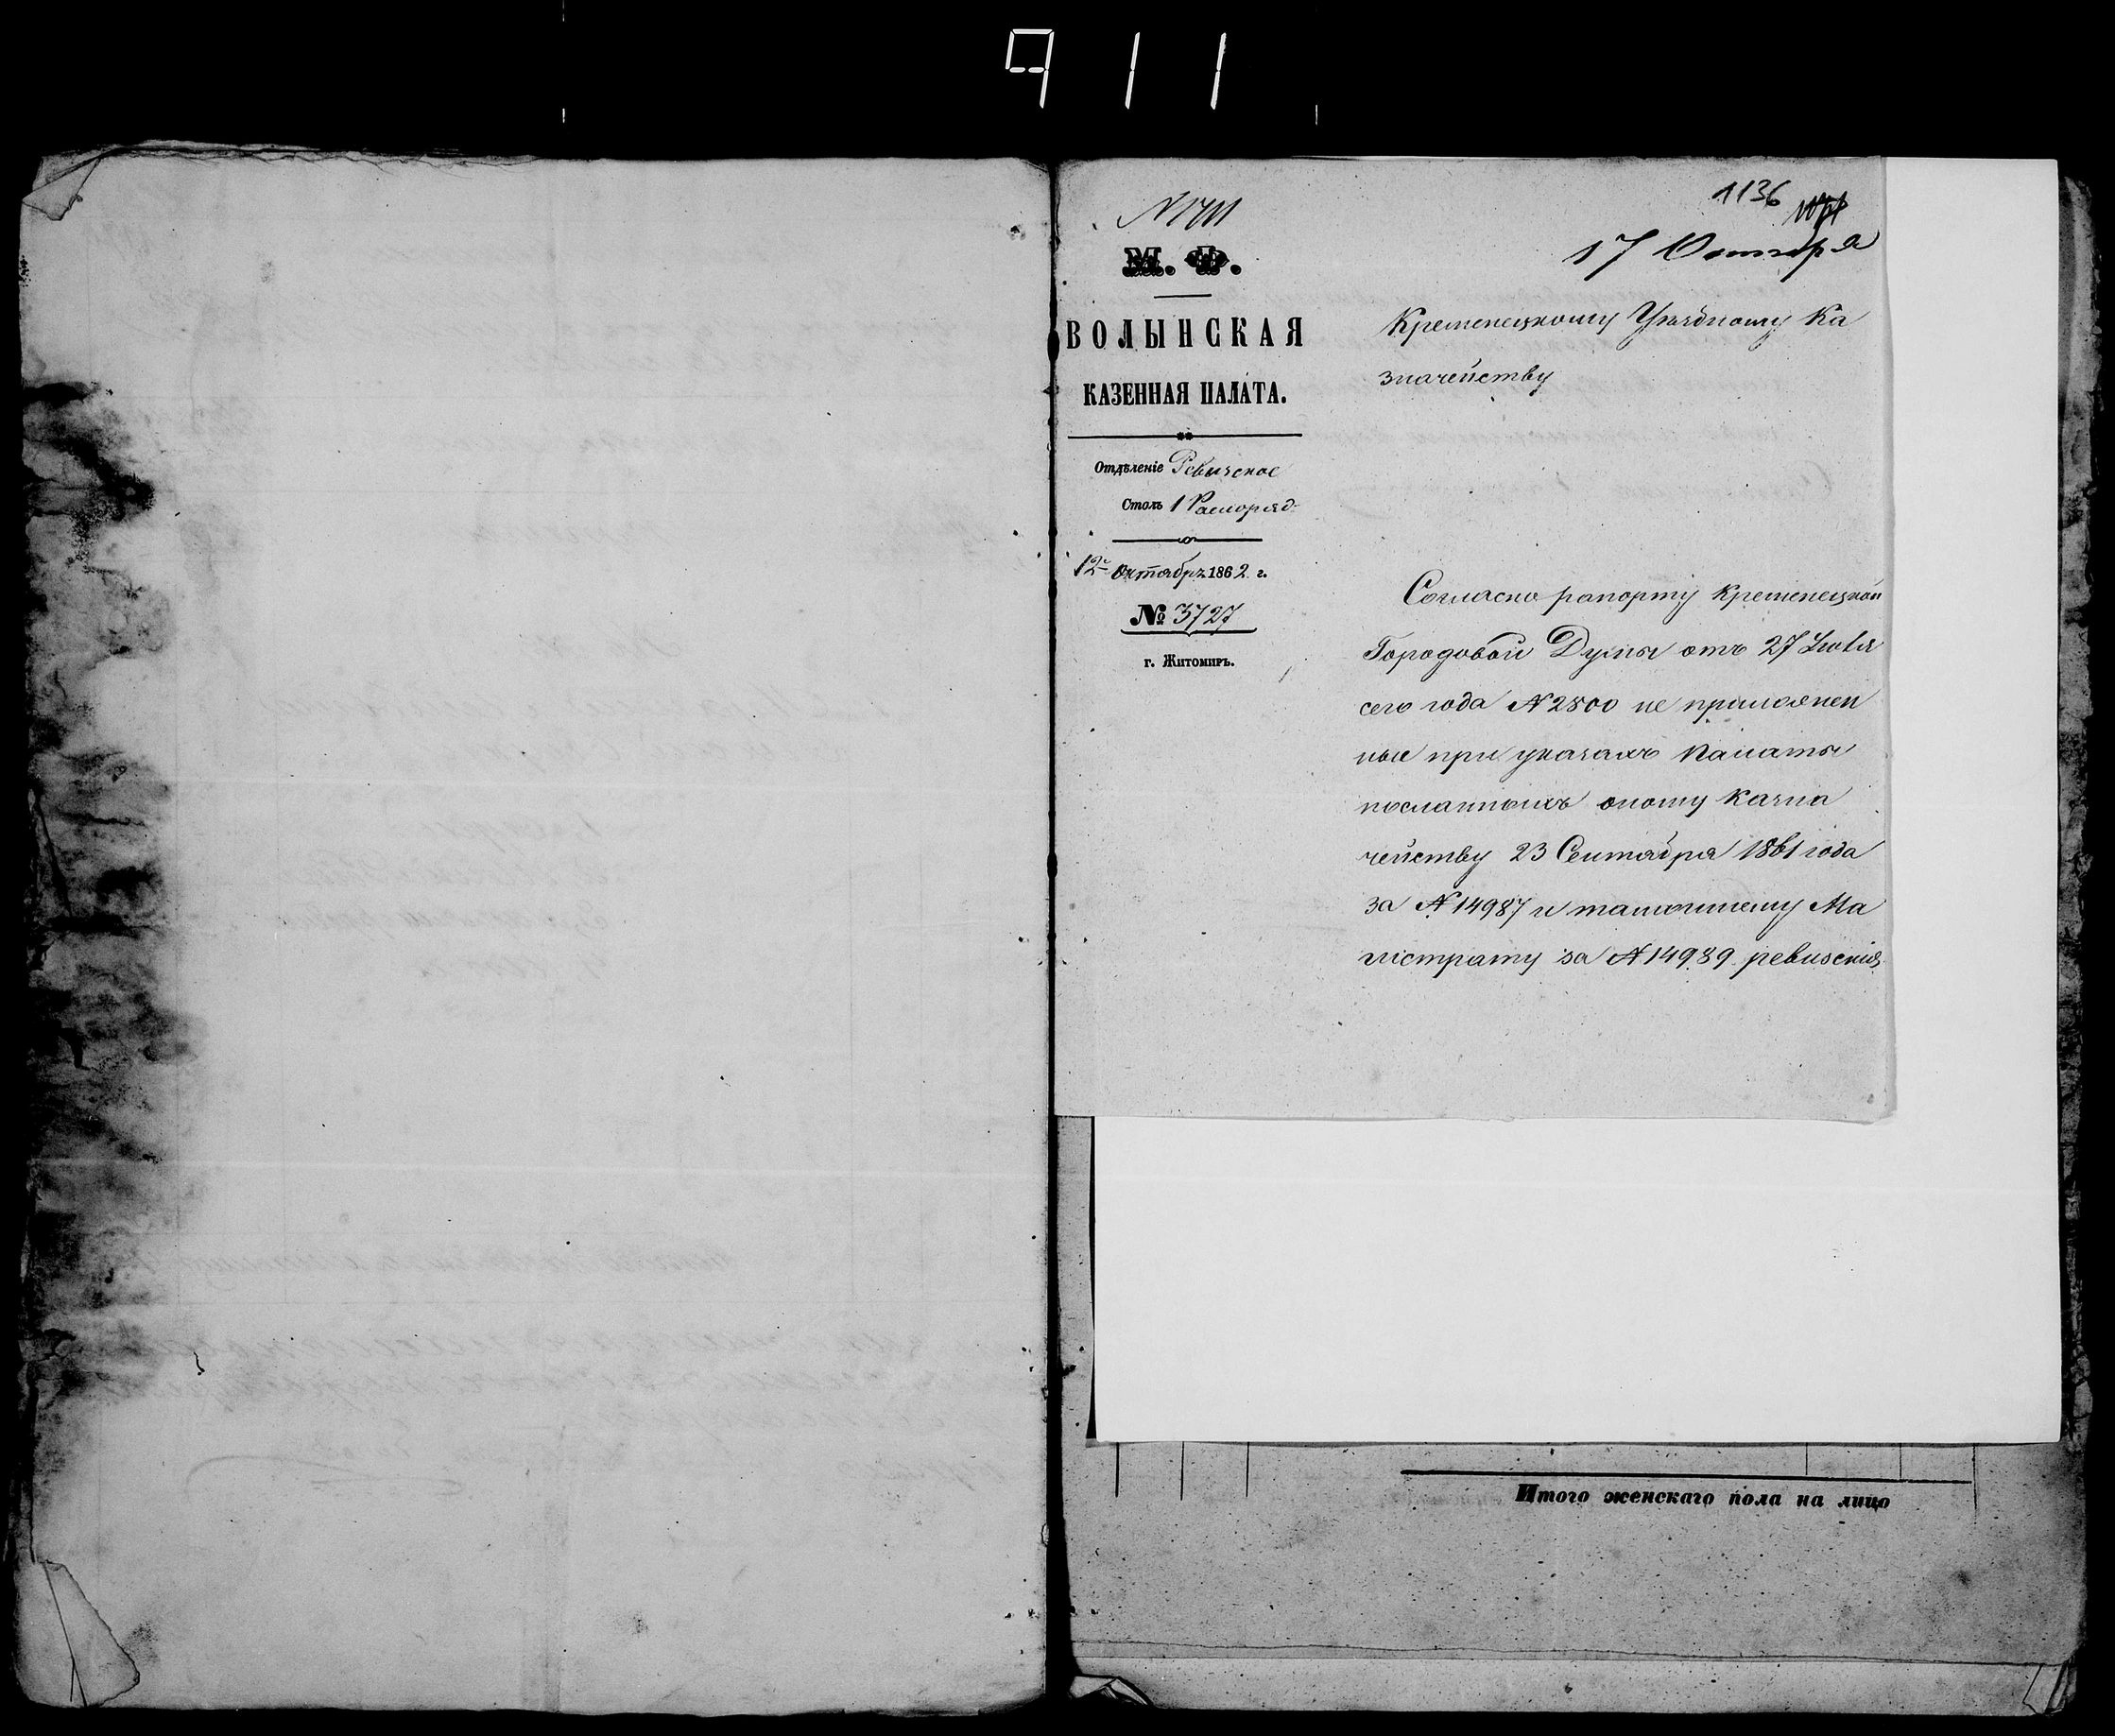 911
1136
N 1711
17 Октября
М. Ф.
ВОЛЫНСКАЯ
КАЗЕННАЯ ПАЛАТА.
Отдѣленіе Ревизское
Столъ 1 Распоряд.
12 Октября 1862 г.
№ 3727
г. Житомиръ.
Кременецкому Уѣздному Ка
значейству
Согласно рапорту Кременецкой
Городовой Думы отъ 27 Іюля
сего года N 2800 не приложен
ные при указахъ Палаты
посланныхъ оному Казна
чейству 23 Сентября 1861 года
за N 14987 и тамошнему Ма
гистрату за N 14989 ревизскія
Итого женскаго пола на лицо